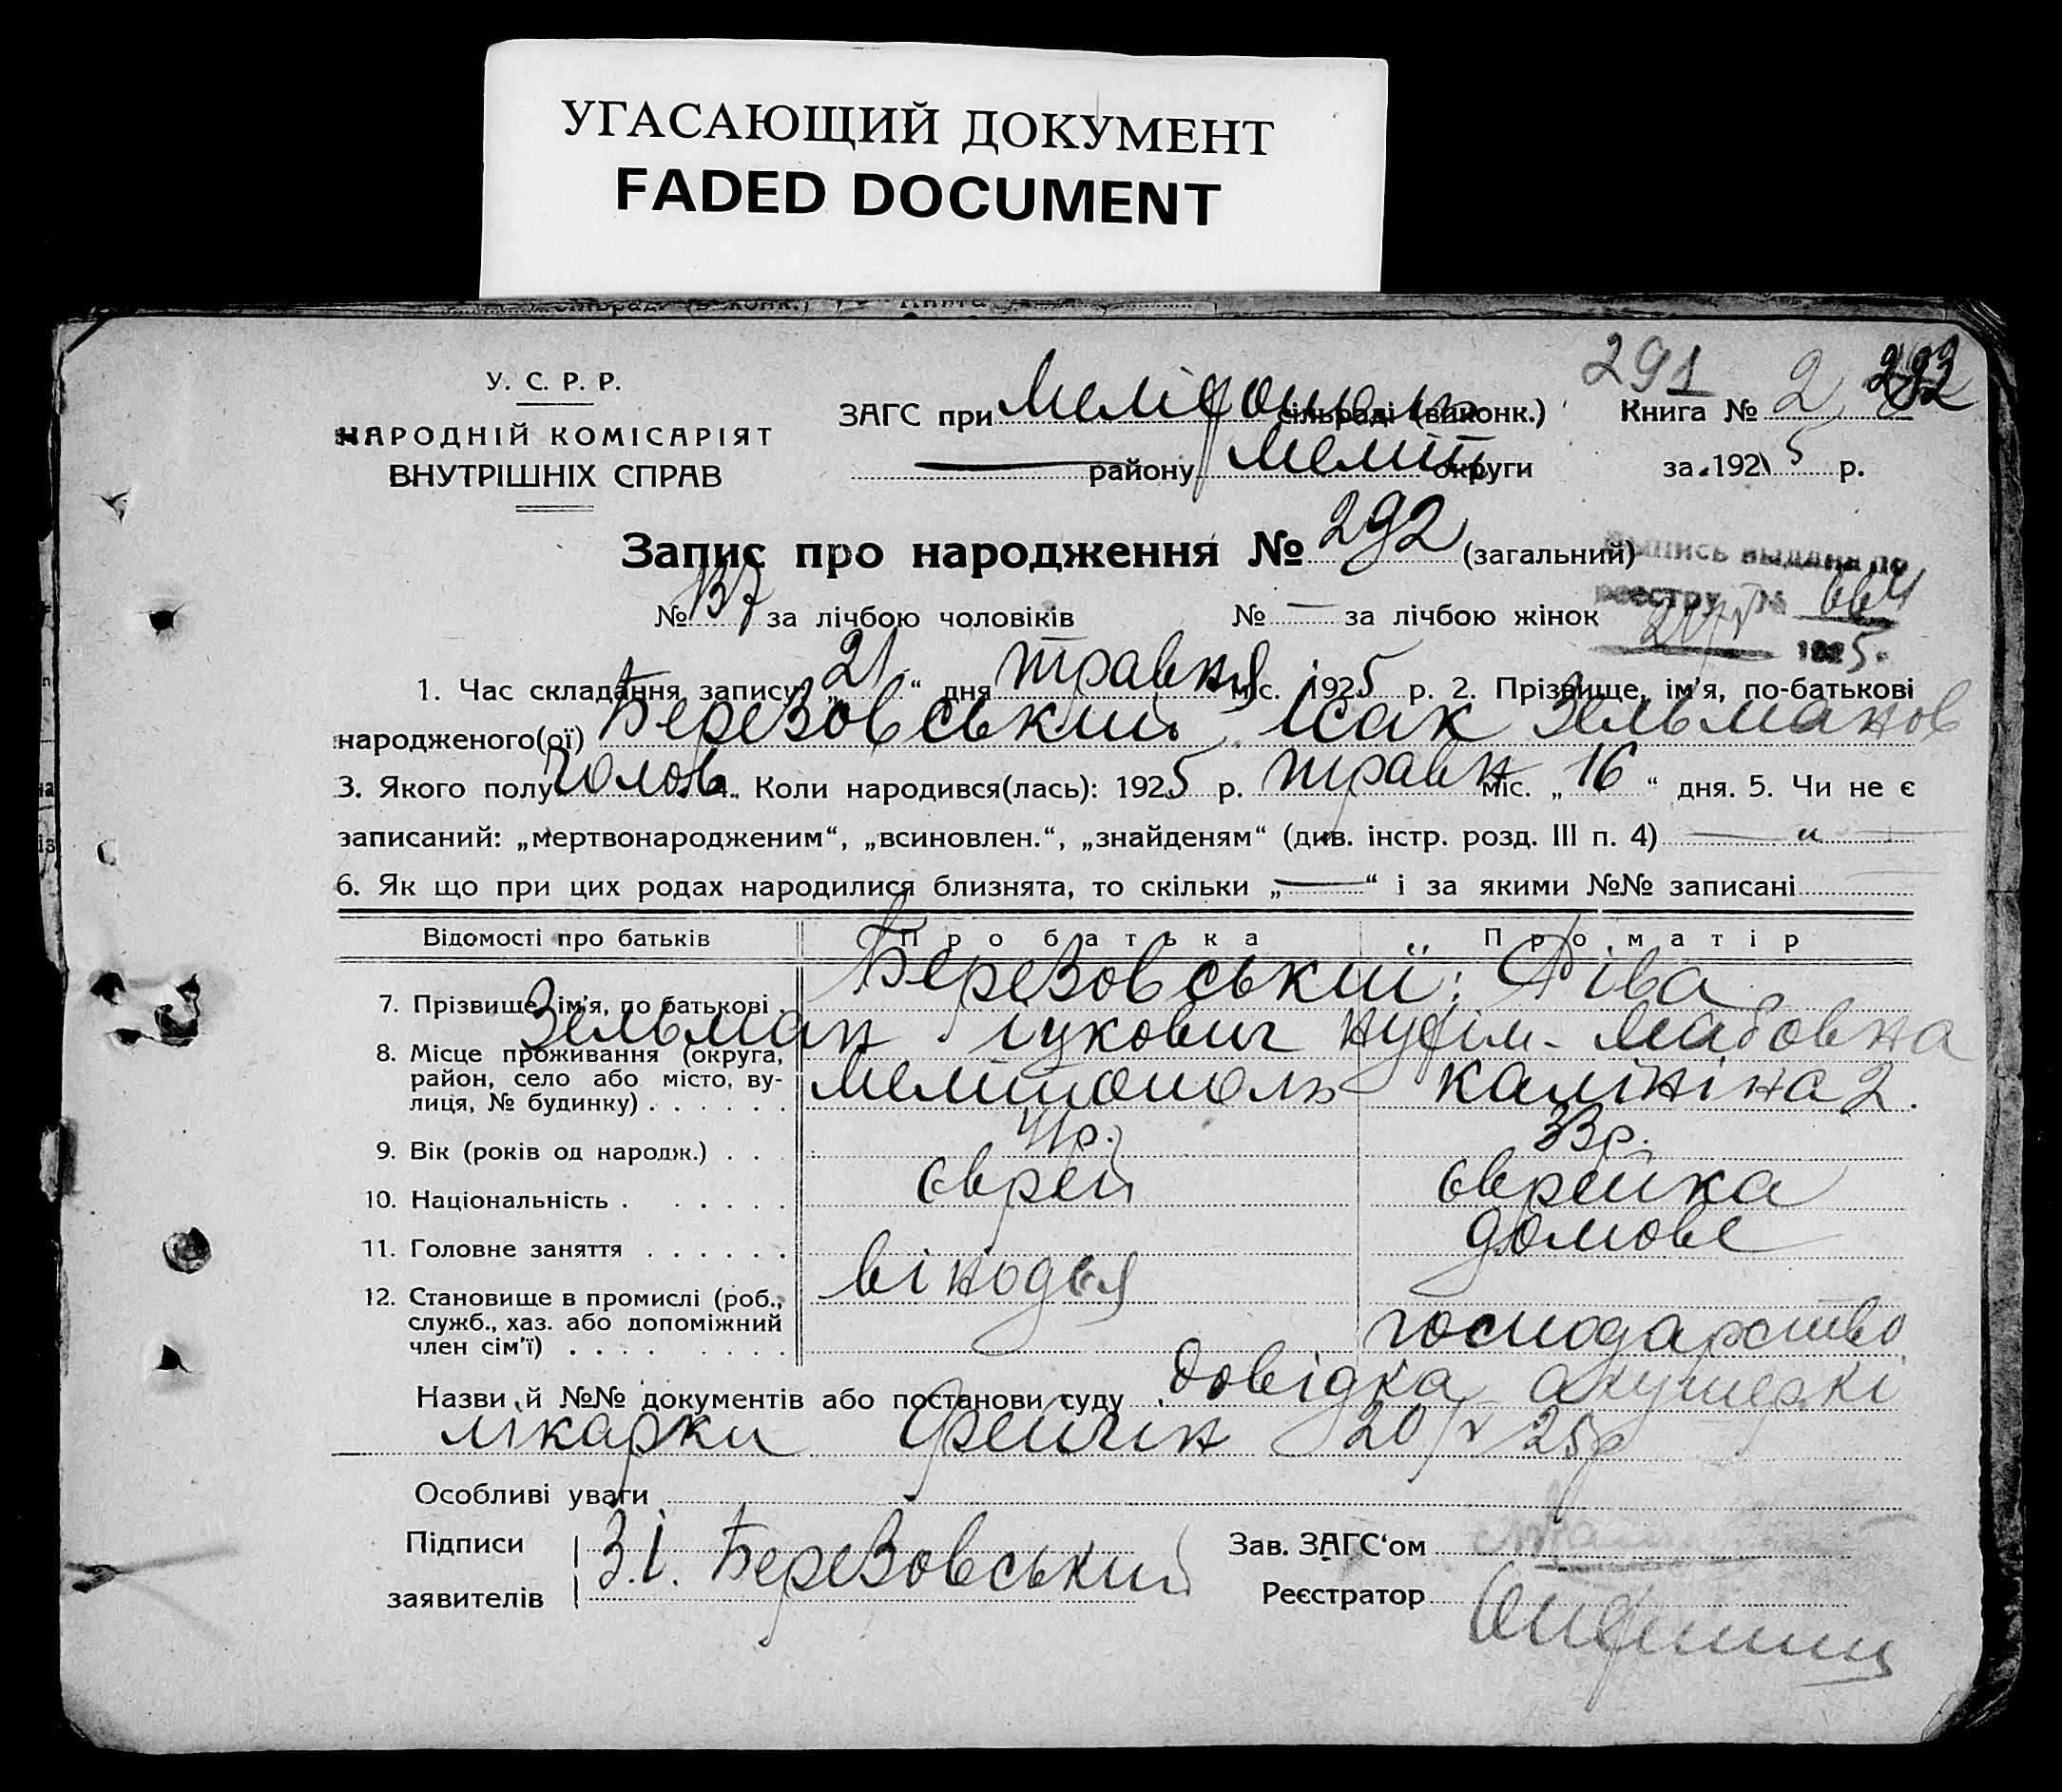 УГАСАЮЩИЙ ДОКУМЕНТ
FADED DOCUMENT
291 2 292
У. С. Р. Р.
НАРОДНІЙ КОМІСАРІЯТ
ВНУТРІШНІХ СПРАВ
ЗАГС при Мелітополь сільраді (виконк.) Книга № 2
району Меліт округи за 1925 р.
Запис про народження № 292 (загальний)
Выпись выдана по
реестру № 664
20/V 1925.
№ 137 за лічбою чоловіків № — за лічбою жінок
1. Час складання запису „21“ дня травня міс. 1925 р. 2. Прізвище, ім'я, по-батькові
народженого(ої) Березовський Ісак Зельманов
3. Якого полу чолов. Коли народився(лась): 1925 р. травн міс. „16“ дня. 5. Чи не є
записаний: „мертвонародженим“, „всиновлен.“, „знайденям“ (див. інстр. розд. III п. 4) — „ —
6. Як що при цих родах народилися близнята, то скільки „—“ і за якими №№ записані
Відомості про батьків Про батька Про матір
7. Прізвище, ім'я, по батькові . Березовський: Ріва
Зельман іцкович
8. Місце проживання (округа, район, село або місто, вулиця, № будинку) . . . . . . Мелітополь Калініна 2.
9. Вік (років од народж.) . . . 41р. 33р.
10. Національність . . . . . . Єврей Єврейка
11. Головне заняття . . . . . . домове
вінодел
12. Становище в промислі (роб., служб., хаз. або допоміжний член сім'ї) . . . . . . . . господарство
Назви й №№ документів або постанови суду Довідка акушеркі
лікарки 20/V 25р
Особливі уваги
Підписи заявителів З.І. Березовський
Зав. ЗАГС'ом
Реєстратор